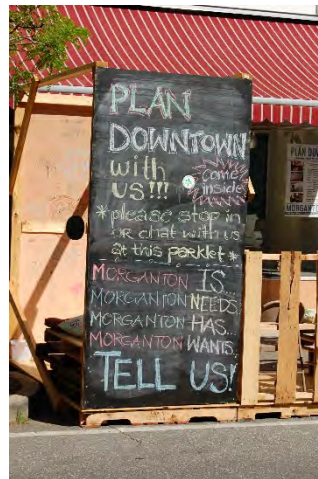 PLAN
DOWNTOWN
with
US!!!
come
inside
*please stop in
or chat with us
at this parklet*
MORGANTON IS...
MORGANTON NEEDS...
MORGANTON HAS...
MORGANTON WANTS...
TELL US!
PLAN
MORGANTO